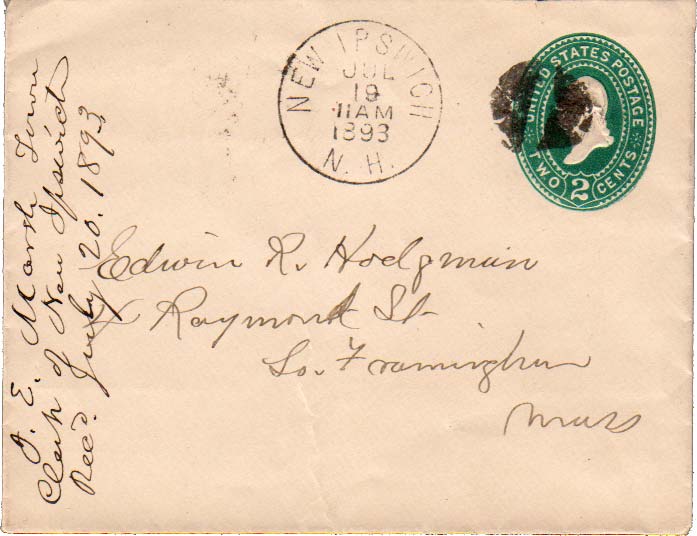 NEW IPSWICH
JUL
19
11AM
1893
N. H.
UNITED STATES POSTAGE
TWO 2 CENTS
Edwin R. Hodgman
Raymond St.
So. Framingham
Mass
E. Marsh Town
Clerk of New Ipswich
Rec'd. July 20. 1893